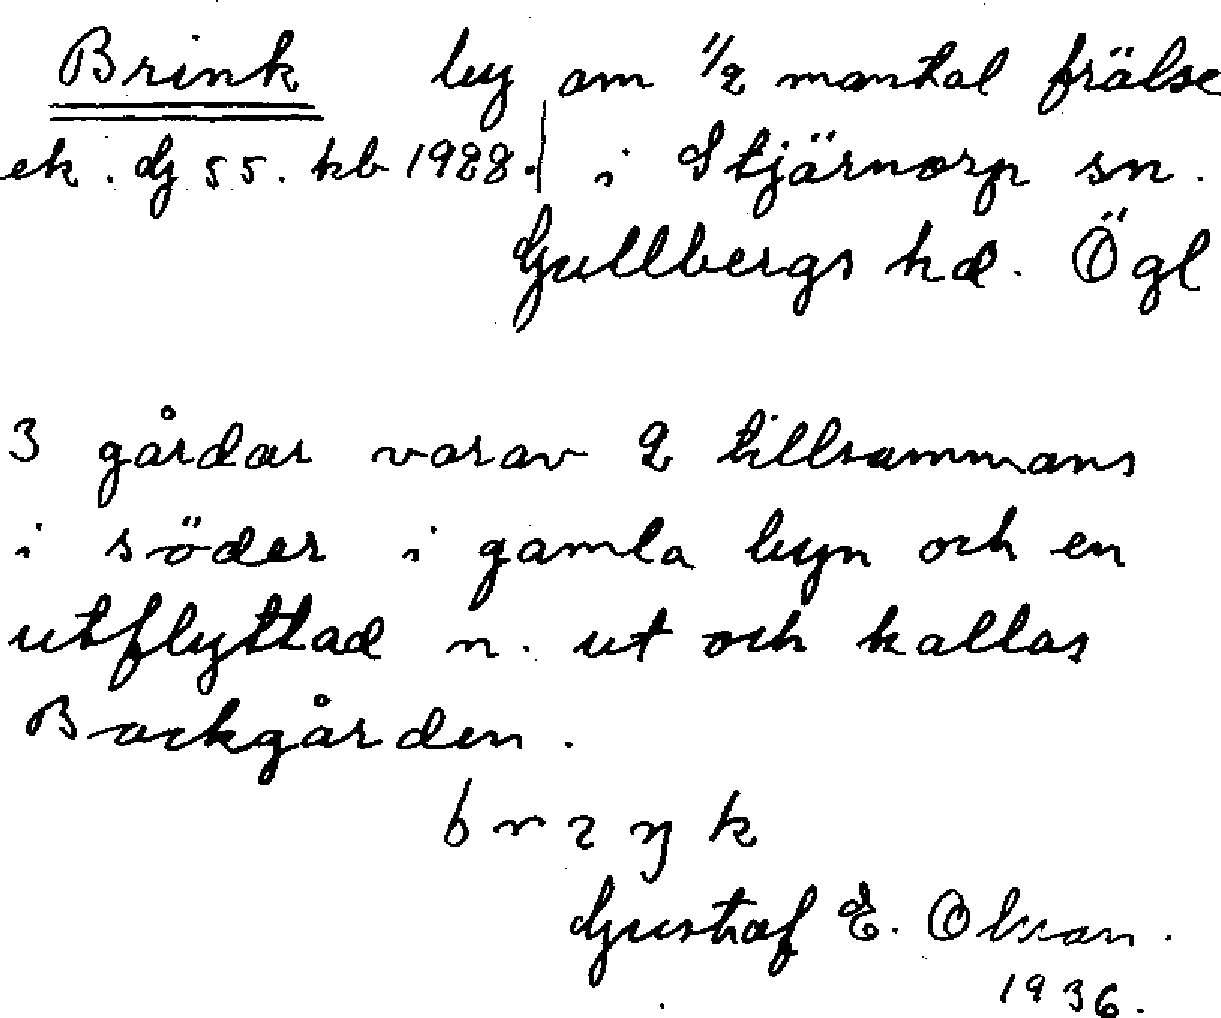 Brink by om 1/2 mantal frälse
ek. dj 55. kb 1928. i Stjärnorp sn.
Gullbergs hd. Ögl
3 gårdar varav 2 tillsammans
i söder i gamla byn och en
utflyttad n. ut och kallas
Backgården.
Gustaf E. Olsson.
1936.